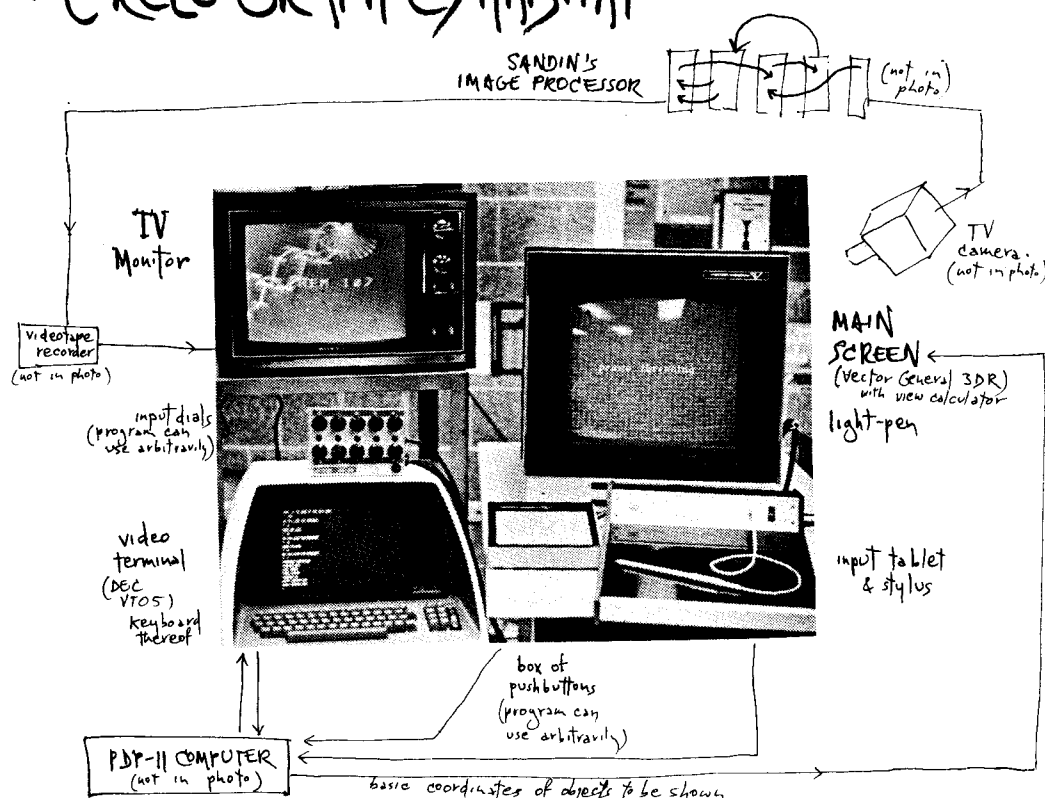 SANDIN'S
IMAGE PROCESSOR
(not in
photo)
TV
Monitor
TV
camera.
(not in photo)
videotape
recorder
(not in photo)
MAIN
SCREEN
(Vector General 3DR)
with view calculator
light-pen
input dials
(program can
use arbitrarily)
video
terminal
(DEC
VT05)
keyboard
thereof
input tablet
& stylus
box of
pushbuttons
(program can
use arbitrarily)
PDP-11 COMPUTER
(not in photo)
basic coordinates of objects to be shown